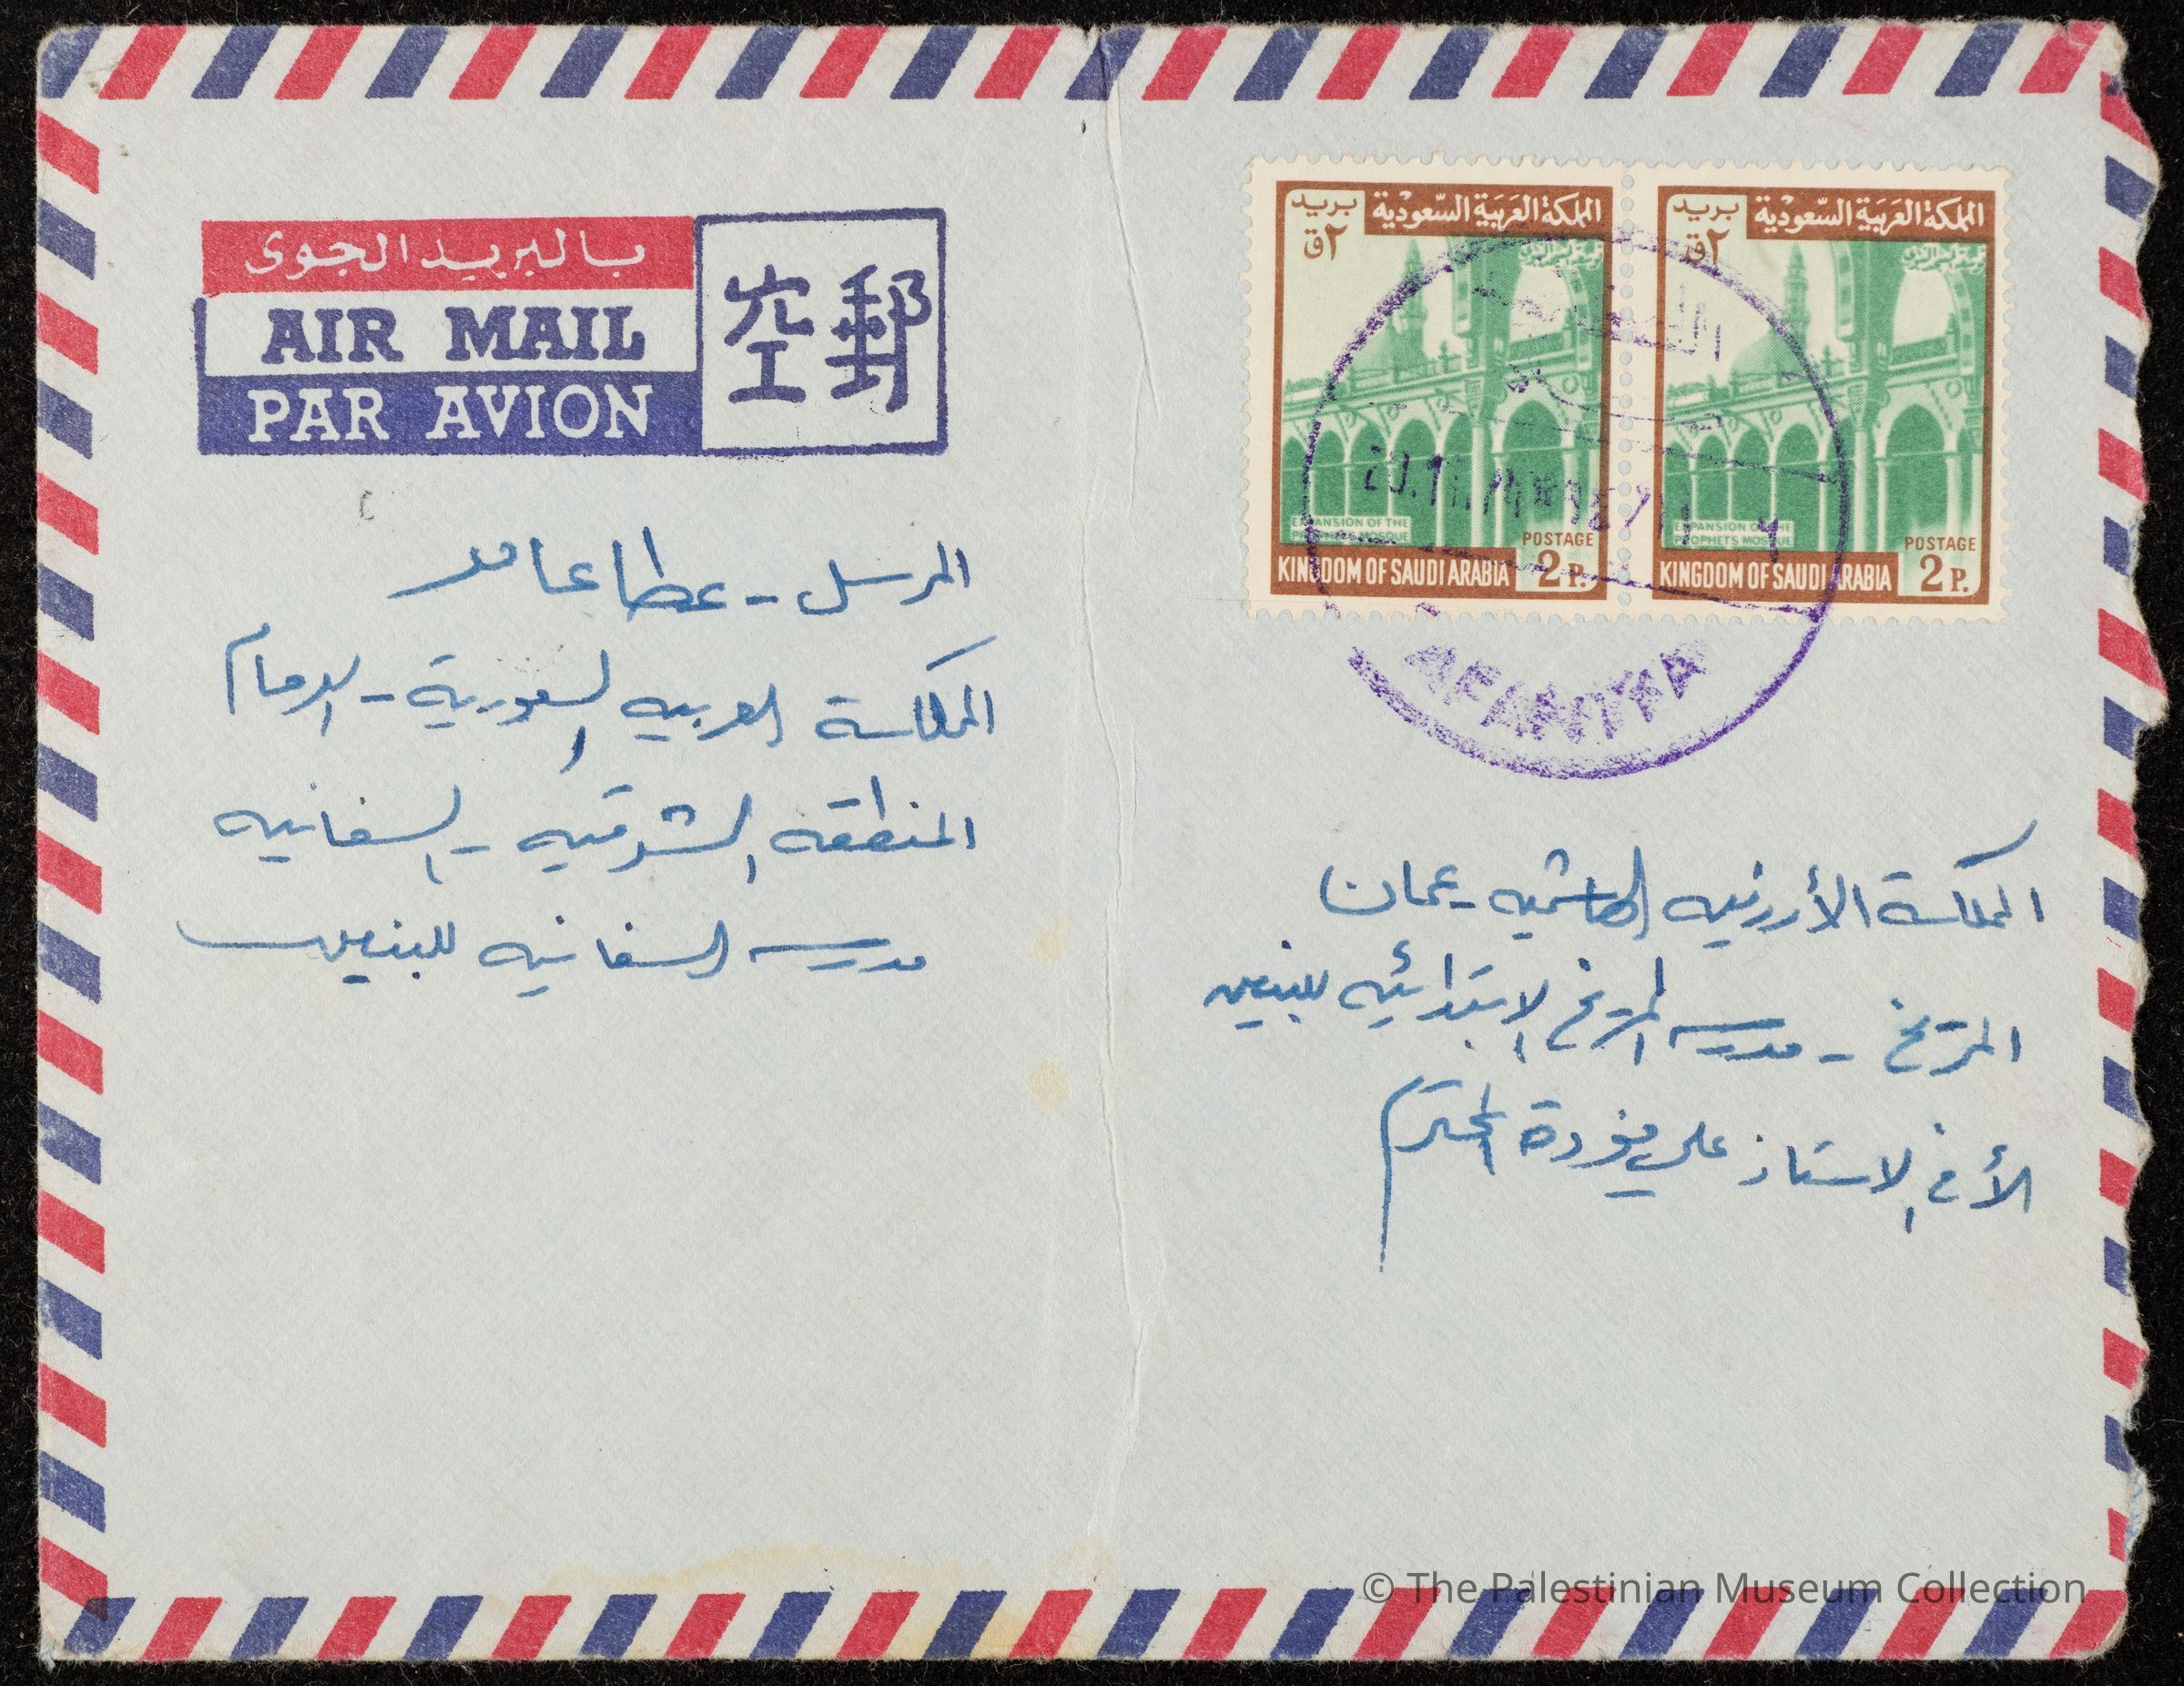 بالبريد الجوى
AIR MAIL
PAR AVION
空郵
المملكة العربية السعودية
بريد
٢ق
EXPANSION OF THE
PROPHETS MOSQUE
POSTAGE
2 P.
KINGDOM OF SAUDI ARABIA
المملكة العربية السعودية
بريد
٢ق
EXPANSION OF THE
PROPHETS MOSQUE
POSTAGE
2 P.
KINGDOM OF SAUDI ARABIA
AFANIYA
المرسل - عطا عامر
المملكة العربيه السعودية - الدمام
المنطقه الشرقيه - السفانيه
مدرسه السفانيه للبنين
المملكة الأردنيه الهاشميه - عمان
المريخ - مدرسه المريخ الابتدائيه للبنين
الأخ الاستاذ علي فودة المحترم
© The Palestinian Museum Collection